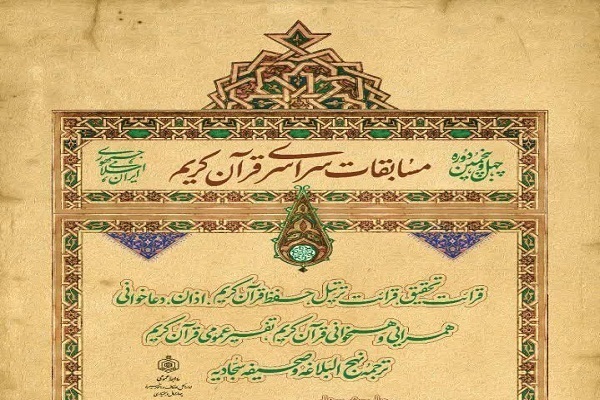 چهل و پنجمین دوره
مسابقات سراسری قرآن کریم
جمهوری اسلامی ایران
قرائت تحقیق، قرائت ترتیل، حفظ قرآن کریم، اذان، دعاخوانی
همسرایی و همخوانی قرآن کریم، تفسیر عمومی قرآن کریم
ترجمه نهج البلاغه و صحیفه سجادیه